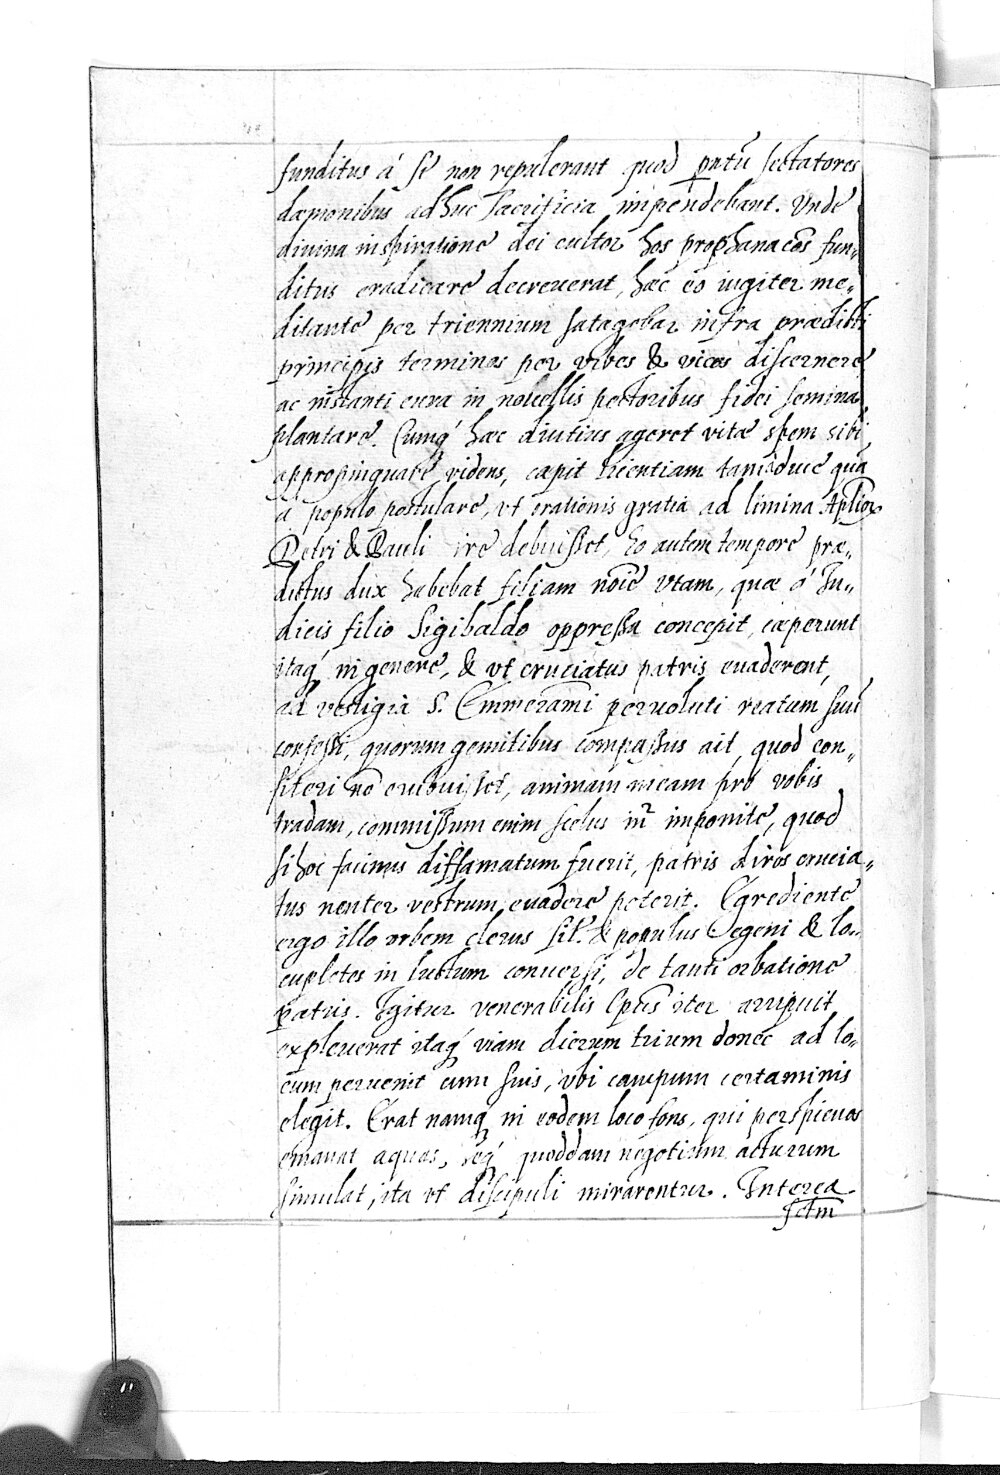 funditus á se non repulerant quod pntū sectatores
dæmonibus adhuc sacrificia impendebant. Unde
divina inspiratione dei cultor hos prophanacōs fun„
ditus eradicare decreverat, hæc eo iugiter me„
ditante per triennium satagebat infra prædicti
principis terminos per vrbes & vicos discernere
ac instanti cura in novellis pectoribus fidei semina
plantare. Cumq́ hæc diutius ageret vitæ spem sibi
appropinquare videns, cæpit licentiam tam duce quā
a populo postulare, vt orationis gratia ad limina Aplior
Petri & Pauli ire debuisset, Eo autem tempore præ„
dictus dux habebat filiam noīe Vtam, quæ á Iu„
dicis filio Sigibaldo oppressa concepit, cæperunt
itaq́ ingenere, & vt cruciatus patris evaderent,
ad vestigia S. Emmerami pervoluti reatum suū
confessi, quorum gemitibus compassus ait, quod con„
fiteri nō erubuisset, animam meam pro vobis
tradam, commissum enim scelus in imponite, quod
si hoc facinus diffamatum fuerit, patris diros crucia„
tus neuter vestrum evadere poterit. Egrediente
ergo illo urbem clerus sil. & populus egeni & lo„
cupletes in luctum conversi, de tanti orbatione
patris. Igitur venerabilis Eps iter arripuit
expleverat itaq́ viam dierum trium donec ad lo„
cum pervenit cum suis, vbi campum certaminis
elegit. Erat namq́ in eodem loco fons, qui perspicuas
emanat aquas, seq́ quoddam negotium acturum
simulat, ita vt discipuli mirarentur. Interea
sctm